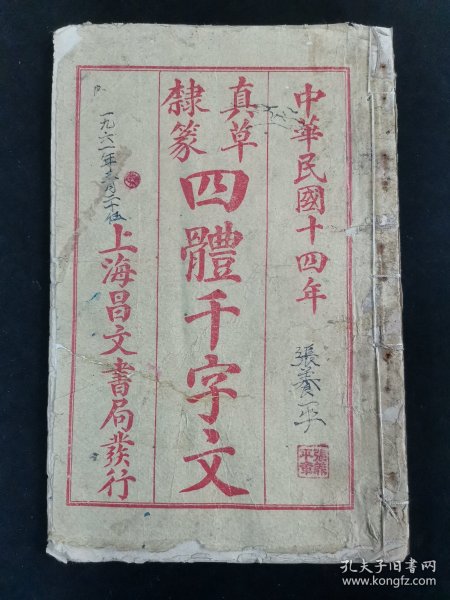 中華民國十四年
張義平
張義平章
真草
隸篆
四體千字文
上海昌文書局發行
孔夫子旧书网
www.kongfz.com